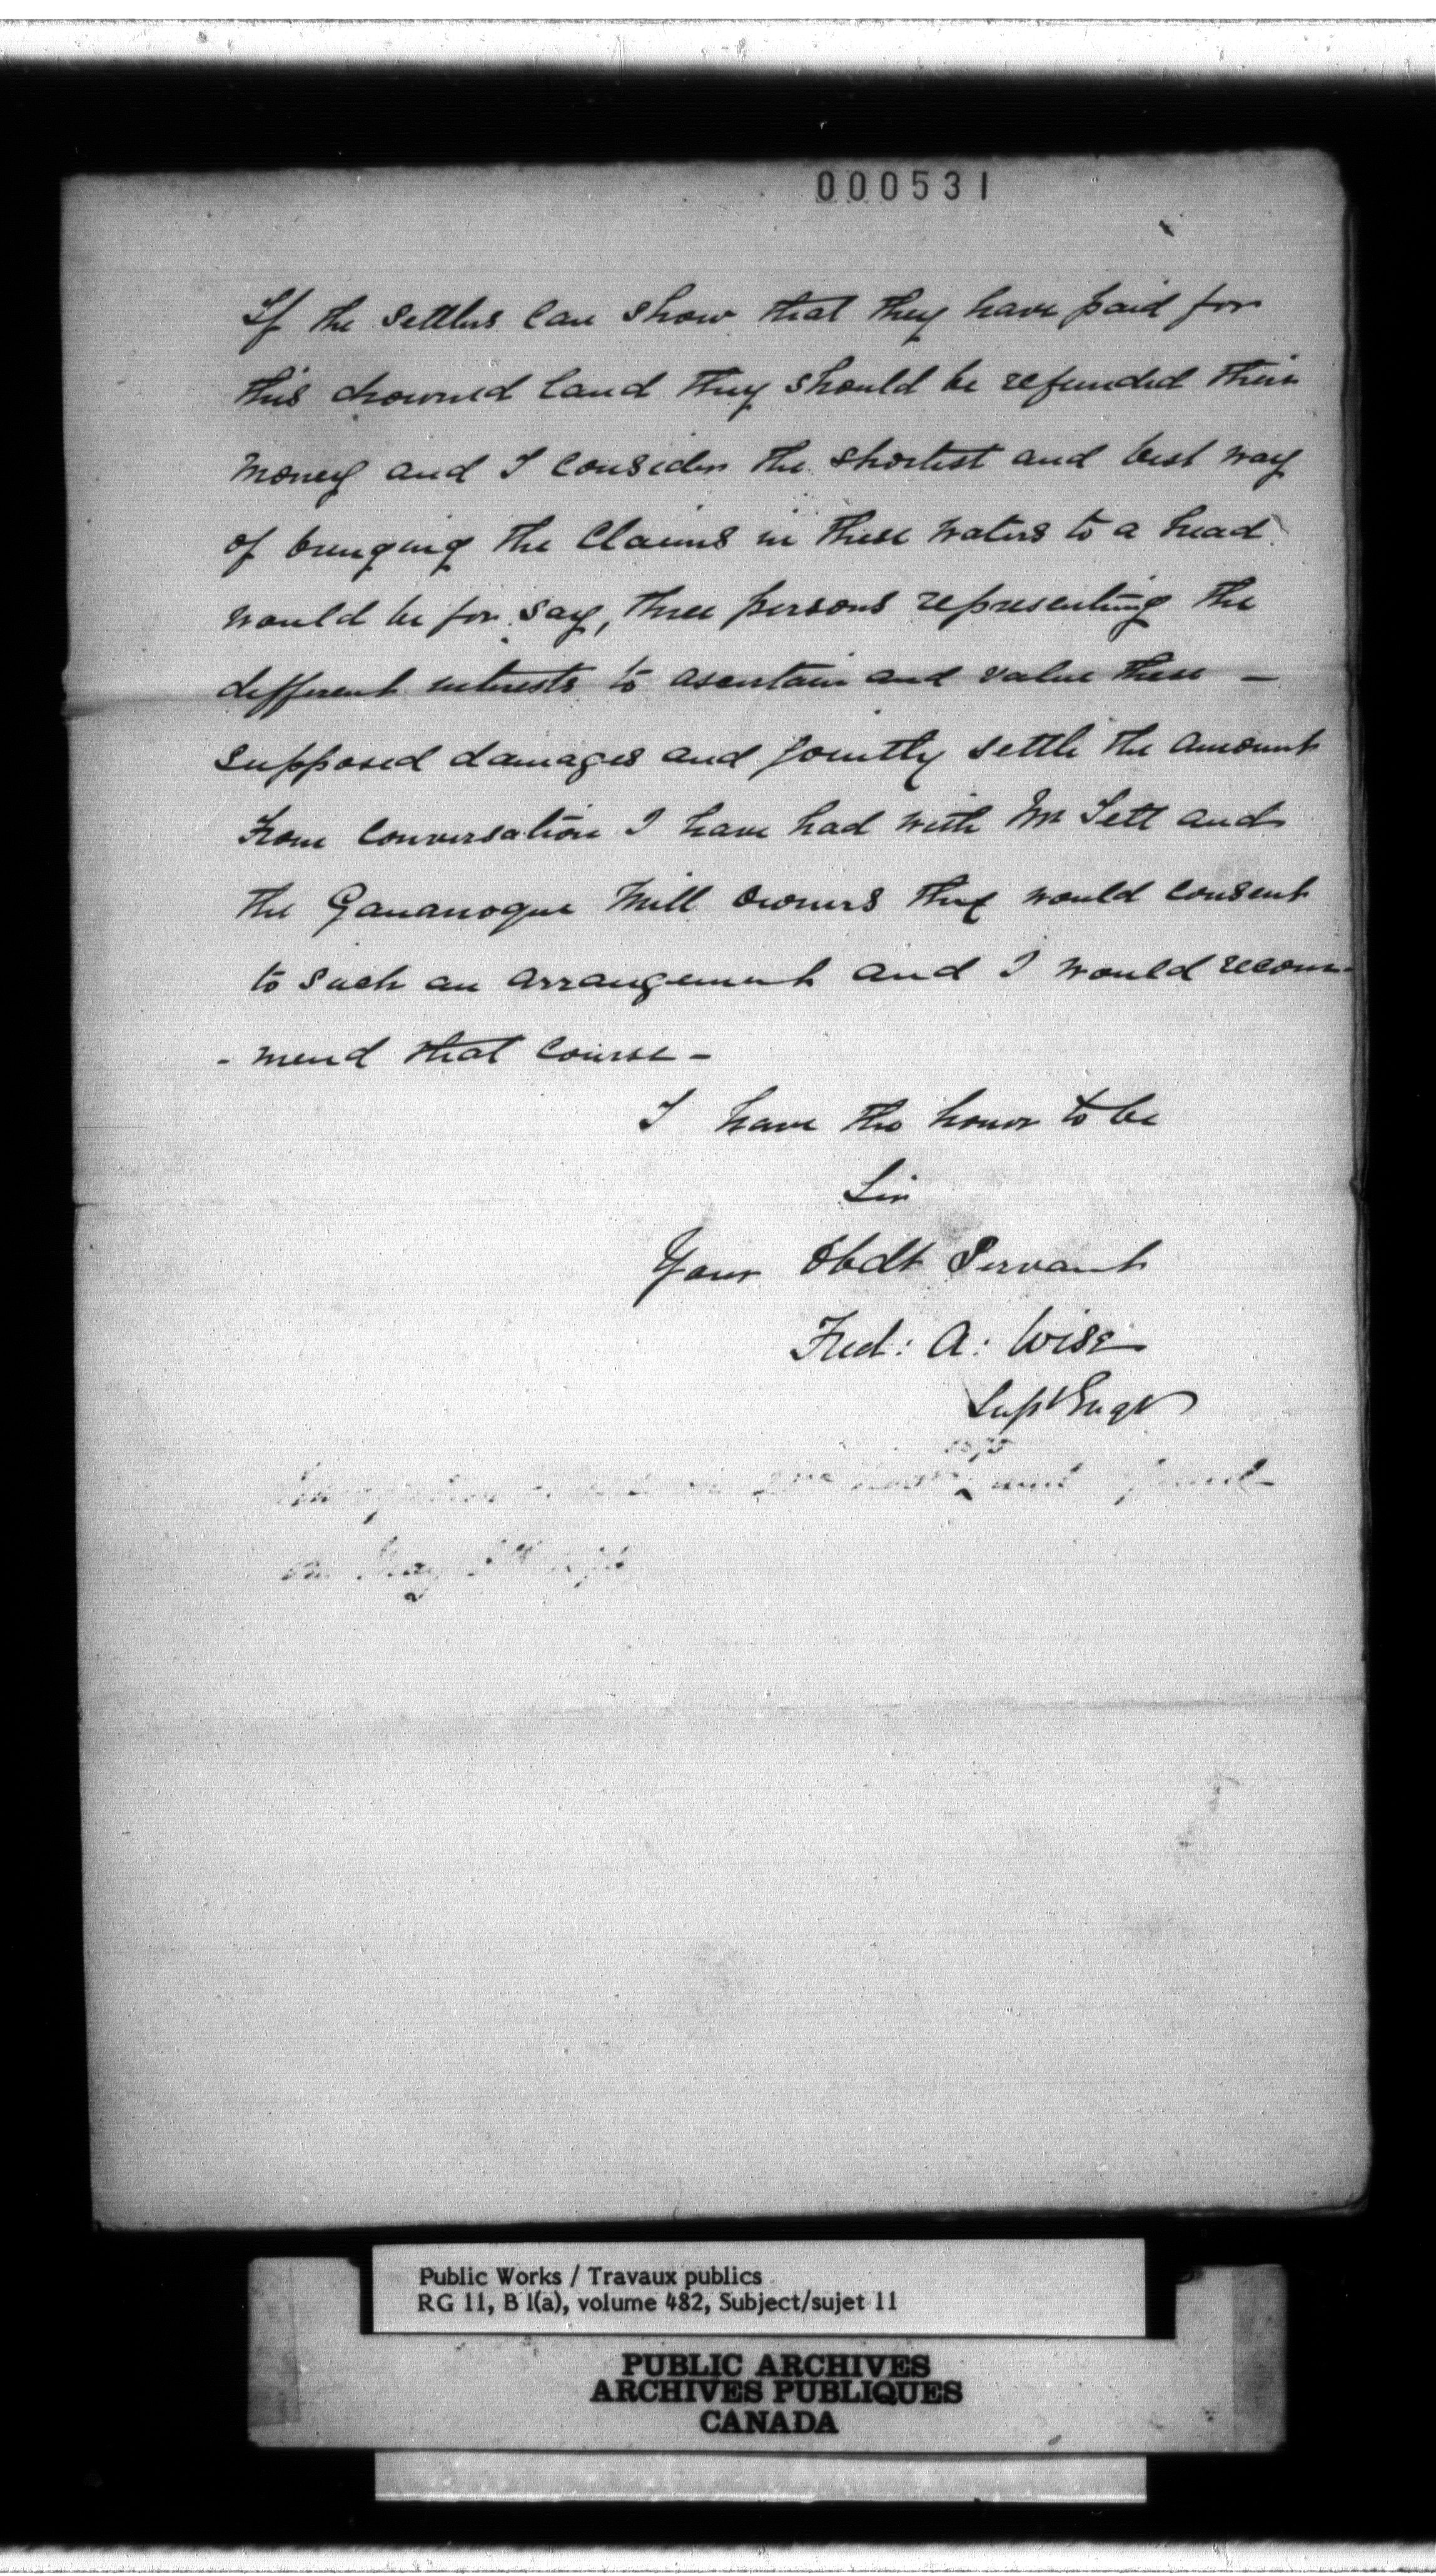 000531
If the settlers can show that they have paid for
this drowned land they should be refunded their
money and I consider the shortest and best way
of bringing the claims in these waters to a head
would be for say, three persons representing the
different interests to ascertain and value these —
supposed damages and jointly settle the amount
From conversation I have had with Mr Tett and
the Gananoque Mill owners they would consent
to such an arrangement and I would recom-
- mend that course -
I have the honor to be
Sir
Your Obdt Servant
Fred: A: Wise
Supt Engr
and
on May
Public Works / Travaux publics
RG 11, B 1(a), volume 482, Subject/sujet 11
PUBLIC ARCHIVES
ARCHIVES PUBLIQUES
CANADA